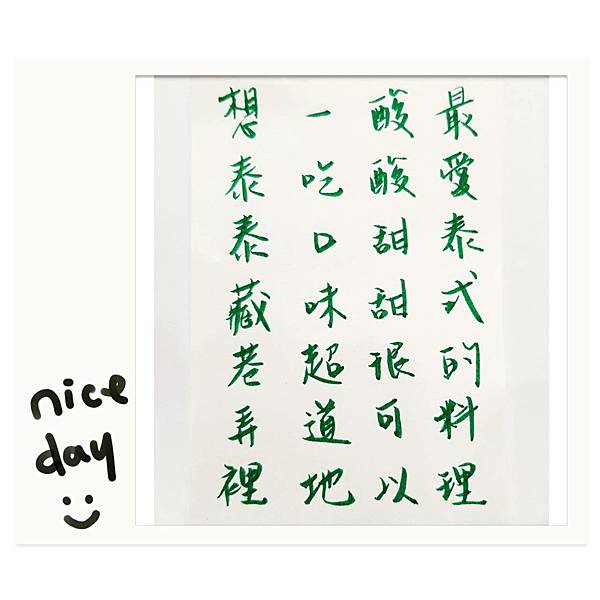 最愛泰式的料理
酸酸甜甜很可以
一吃口味超道地
想泰泰藏巷弄裡
nice
day